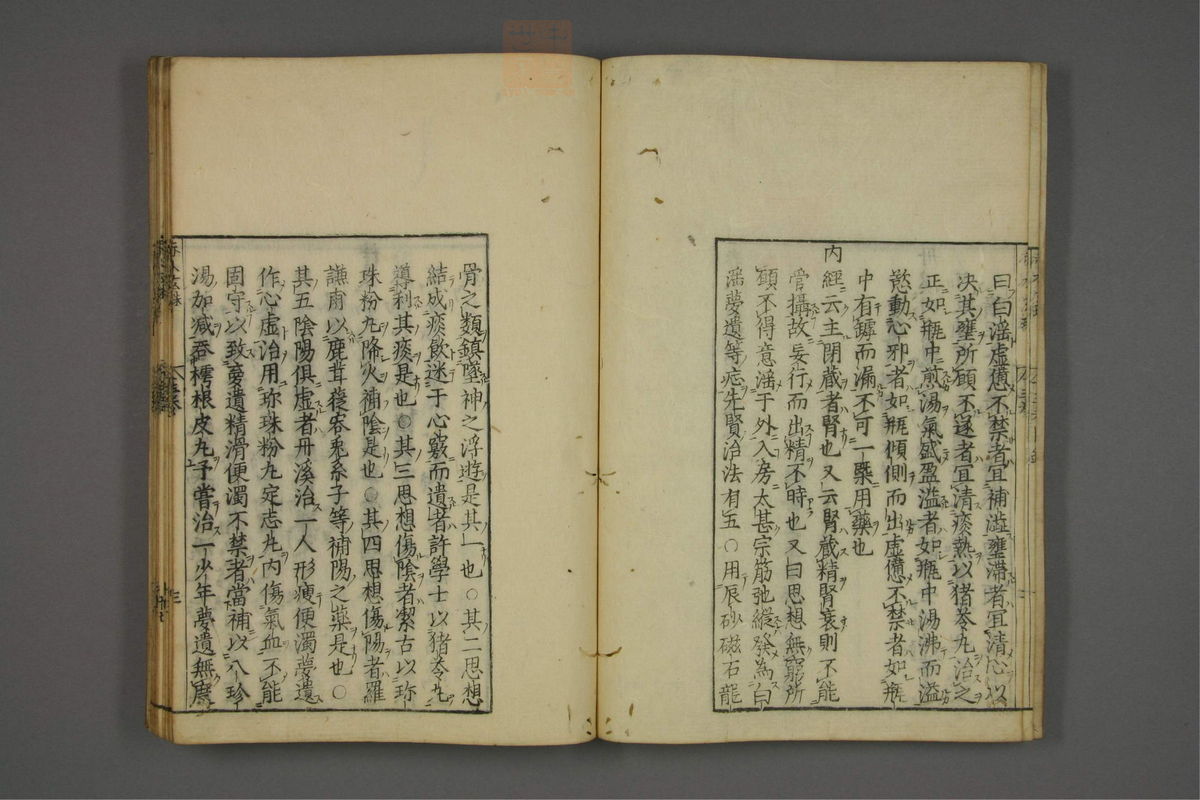 曰白淫虚憊不禁者宜補澁壅滞者宜清心以
决其壅所願不遂者宜清痰熱以猪苓丸治之
正如瓶中煎湯氣盛盈溢者如瓶中湯沸而溢
慾動心邪者如瓶傾側而出虚憊不禁者如瓶
中有罅而漏不可一槩用藥也
内經云主閉蔵者腎也又云腎蔵精腎衰則不能
管攝故妄行而出精不時也又曰思想無窮所
願不得意淫于外入房太甚宗筋弛縱發為白
淫夢遺等症先賢治法有五○用辰砂磁石龍
骨之類鎮墜神之浮遊是其一也○其二思想
結成痰飲迷于心竅而遺者許學士以猪苓丸
導利其痰是也○其三思想傷陰者潔古以珎
珠粉丸降火補陰是也○其四思想傷陽者羅
謙甫以鹿茸蓯蓉兎糸子等補陽之藥是也○
其五陰陽俱虚者丹溪治一人形瘦便濁夢遺
作心虚治用珎珠粉丸定志丸内傷氣血不能
固守以致夢遺精滑便濁不禁者當補以八珍
湯加減吞樗根皮丸予嘗治一少年夢遺無度